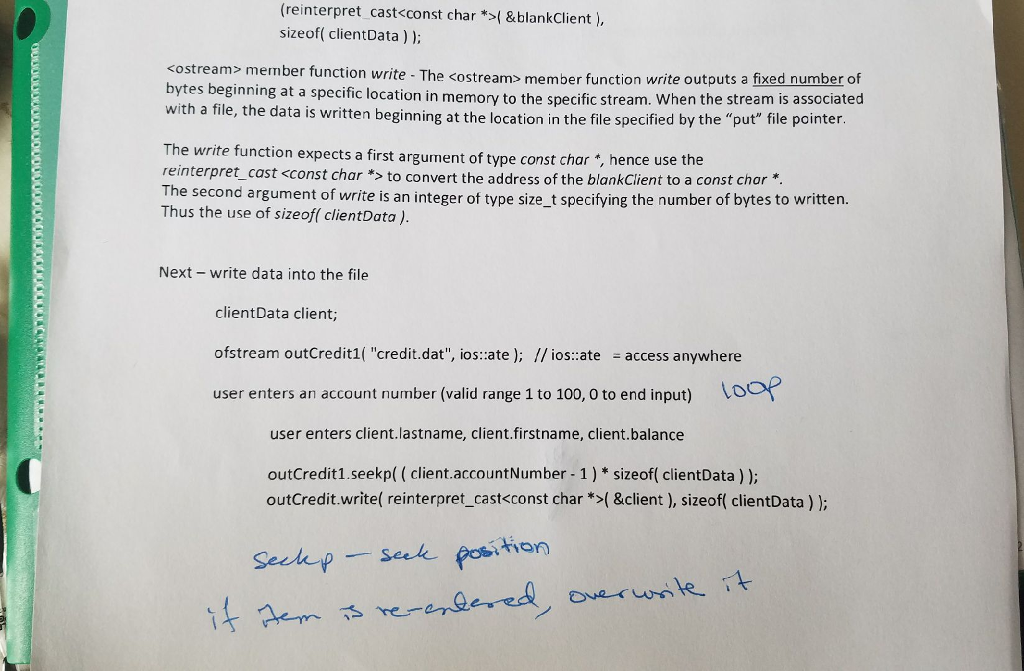 (reinterpret_cast<const char *>( &blankClient ),
sizeof( clientData ) );
<ostream> member function write - The <ostream> member function write outputs a fixed number of
bytes beginning at a specific location in memory to the specific stream. When the stream is associated
with a file, the data is written beginning at the location in the file specified by the “put” file pointer.
The write function expects a first argument of type const char *, hence use the
reinterpret_cast <const char *> to convert the address of the blankClient to a const char *.
The second argument of write is an integer of type size_t specifying the number of bytes to written.
Thus the use of sizeof( clientData ).
Next – write data into the file
clientData client;
ofstream outCredit1( "credit.dat", ios::ate ); // ios::ate = access anywhere
user enters an account number (valid range 1 to 100, 0 to end input) loop
user enters client.lastname, client.firstname, client.balance
outCredit1.seekp( ( client.accountNumber - 1 ) * sizeof( clientData ) );
outCredit.write( reinterpret_cast<const char *>( &client ), sizeof( clientData ) );
seekp – seek position
if item is re-entered, overwrite it